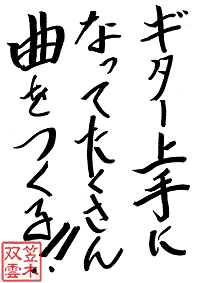 ギター上手に
なってたくさん
曲をつくる!!
笠木
双雲